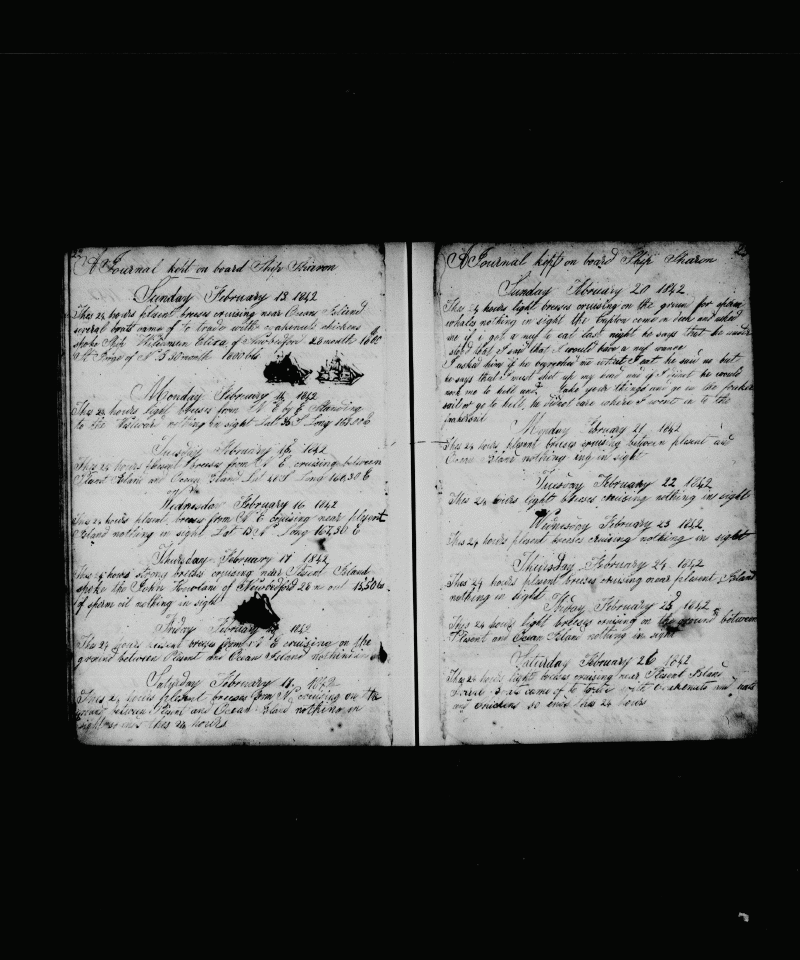 A Journal kept on board Ship Sharon
Sunday February 13 1842
Thes 24 hours plesent breses cruising near Ocean Island
several boats came of to trade with cokernuts chickens
spoke Ship of Newbedford 26 month 1600
St Gorge of N B 30 month 1600 bls
Monday February 14 1842
Thes 24 hours light breses from N E by E Standing
to the nothing in sight Lat S Long E
Tuesday February 15 1842
Thes 24 hours plesent breses from N E cruising between
Plesent Island and Ocean Island Lat 40 S Long 166,30 E
Wednesday February 16 1842
Thes 24 hours plesent breses from N E cruising near plesent
Island nothing in sight Lat Long 167,30 E
Thursday February 17 1842
Thes 24 hours strong breses cruising near Plesent Island
spoke the John Howland of Newbedford 26 m out 1350 bls
of sperm oil nothing in sight
Friday February 1842
Thes 24 hours plesent breses from N E cruising on the
ground between Plesent and Ocean Island nothind in
Saturday February 1842
Thes 24 hours plesent breses from N cruising on the
ground between Plesent and Ocean Island nothing in
sight so ends thes 24 hours
A Journal kept on board Ship Sharon
Sunday February 20 1842
Thes 24 hours light breses cruising on the groun for sperm
whales nothing in sight the Capton come on deck and asked
me if i got a nuf to eat last night he says that he
that I say that I would have a nuf
I asked him if he no what I eat he said no but
he says that I must shut up my head and if I diant he would
me to hell and Take your things and go in the
or go to hell, he diant care where I went in to the
Monday February 21 1842
Thes 24 hours plesent breses cruising between plesent and
Ocean Island nothing in sight
Tuesday February 22 1842
Thes 24 hours light breses cruising nothing in sight
Wednesday February 23 1842
Thes 24 hours plesent breses cruising nothing in sight
Thursday February 24 1842
Thes 24 hours plesent breses cruising near plesent Island
nothing in sight
Friday February 25 1842
Thes 24 hours light breses cruising on the ground between
Plesent and Ocean Islan nothing in sight
Saturday February 26 1842
Thes 24 hours light breses cruising near Plesent Island
came of to trade with Cokernuts
and chickens so ends thes 24 hours